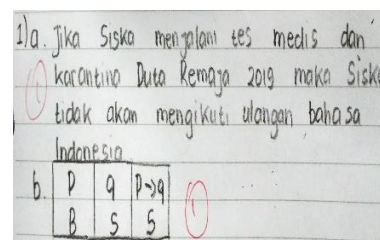 1) a. Jika Siska menjalani tes medis dan
karantina Duta Remaja 2019 maka Siska
tidak akan mengikuti ulangan bahasa
Indonesia
b. P q P→q
B S S